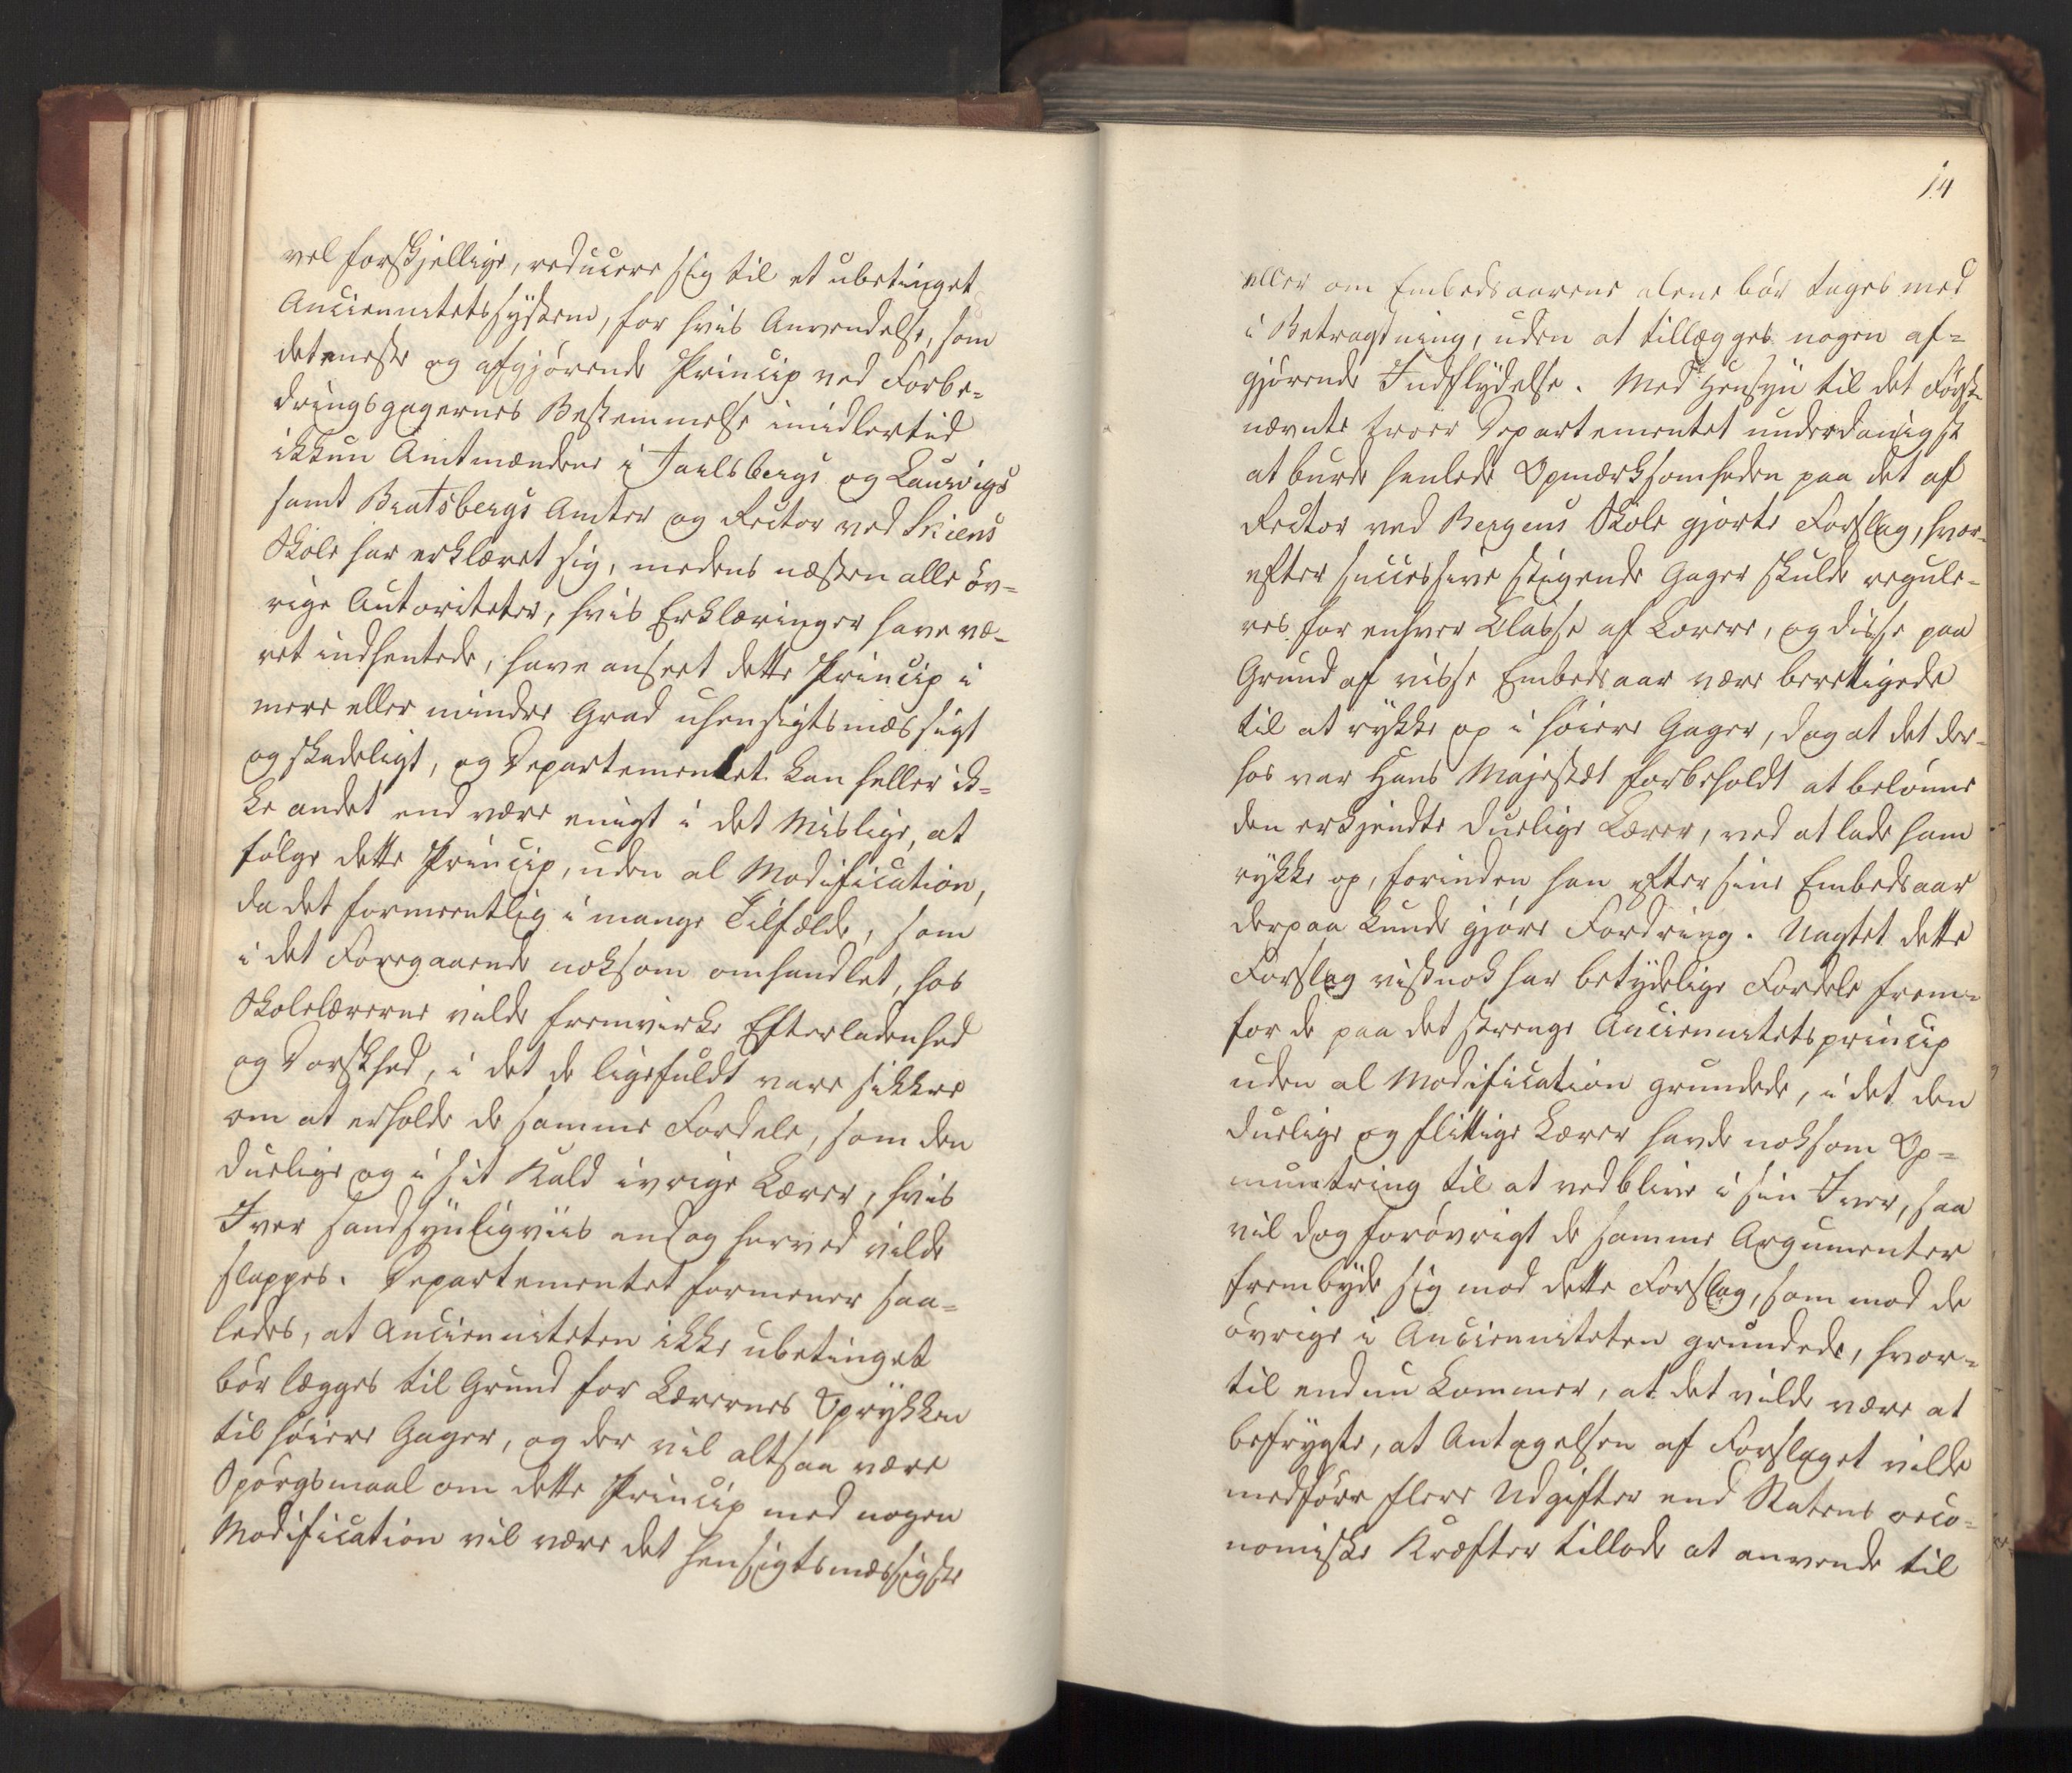 vel forskjellige, reducere sig til et ubetinget
Anciennitetssystem, for hvis Anvendelse, som
det eneste og afgjørende Princip ved Forbe-
dringsgagernes Bestemmelse imidlertid
ikkun Amtmændene i Jarlsbergs og Laurvigs
samt Bratsbergs Amter og Rector ved Skiens
Skole har erklæret sig, medens næsten alle öv-
rige Autoriteter, hvis Erklæringer have væ-
ret indhentede, have anseet dette Princip i
mere eller mindre Grad uhensigtsmæssigt
og skadeligt, og Departementet kan heller ik-
ke andet end være enigt i det Mislige, at
følge dette Princip, uden al Modification,
da det formeentlig i mange Tilfælde, som
i det Foregaaende noksom omhandlet, hos
Skolelærerne vilde fremvirke Efterladenhed
og Dorskhed, i det de ligefuldt vare sikkre
om at erholde de samme Fordele, som den
duelige og i sit Kald ivrige Lærer, hvis
Iver sandsynligviis endog herved vilde
slappes. Departementet formener saa-
ledes, at Ancienniteten ikke ubetinget
bör lægges til Grund for Lærernes Oprykken
til høiere Gager, og der vil altsaa være
Spörgsmaal om dette Princip med nogen
Modification vil være det hensigtsmæssigste
14
eller om Embedsaarene alene bör tages med
i Betragtning, uden at tillægges nogen af-
gjørende Indflydelse. Med Hensyn til det Først-
nævnte troer Departementet underdanigst
at burde henlede Opmærksomheden paa det af
Rector ved Bergens Skole gjorte Forslag, hvor-
efter successive stigende Gager skulde regule-
res for enhver Classe af Lærere, og disse paa
Grund af visse Embedsaar være berettigede
til at rykke op i høiere Gager, dog at det der-
hos var Hans Majestæt forbeholdt at belönne
den erkjendte duelige Lærer, ved at lade ham
rykke op, forinden han efter sine Embedsaar
derpaa kunde gjøre Fordring. Uagtet dette
Forslag vistnok har betydelige Fordele frem-
for de paa det strenge Anciennitetsprincip
uden al Modification grundede, i det den
duelige og flittige Lærer havde noksom Op-
muntring til at vedblive i sin Iver, saa
vil dog forövrigt de samme Argumenter
frembyde sig mod dette Forslag, som mod de
övrige i Ancienniteten grundede, hvor-
til endnu kommer, at det vilde være at
befrygte, at Antagelsen af Forslaget vilde
medføre flere Udgifter end Statens oeco-
nomiske Kræfter tillode at anvende til